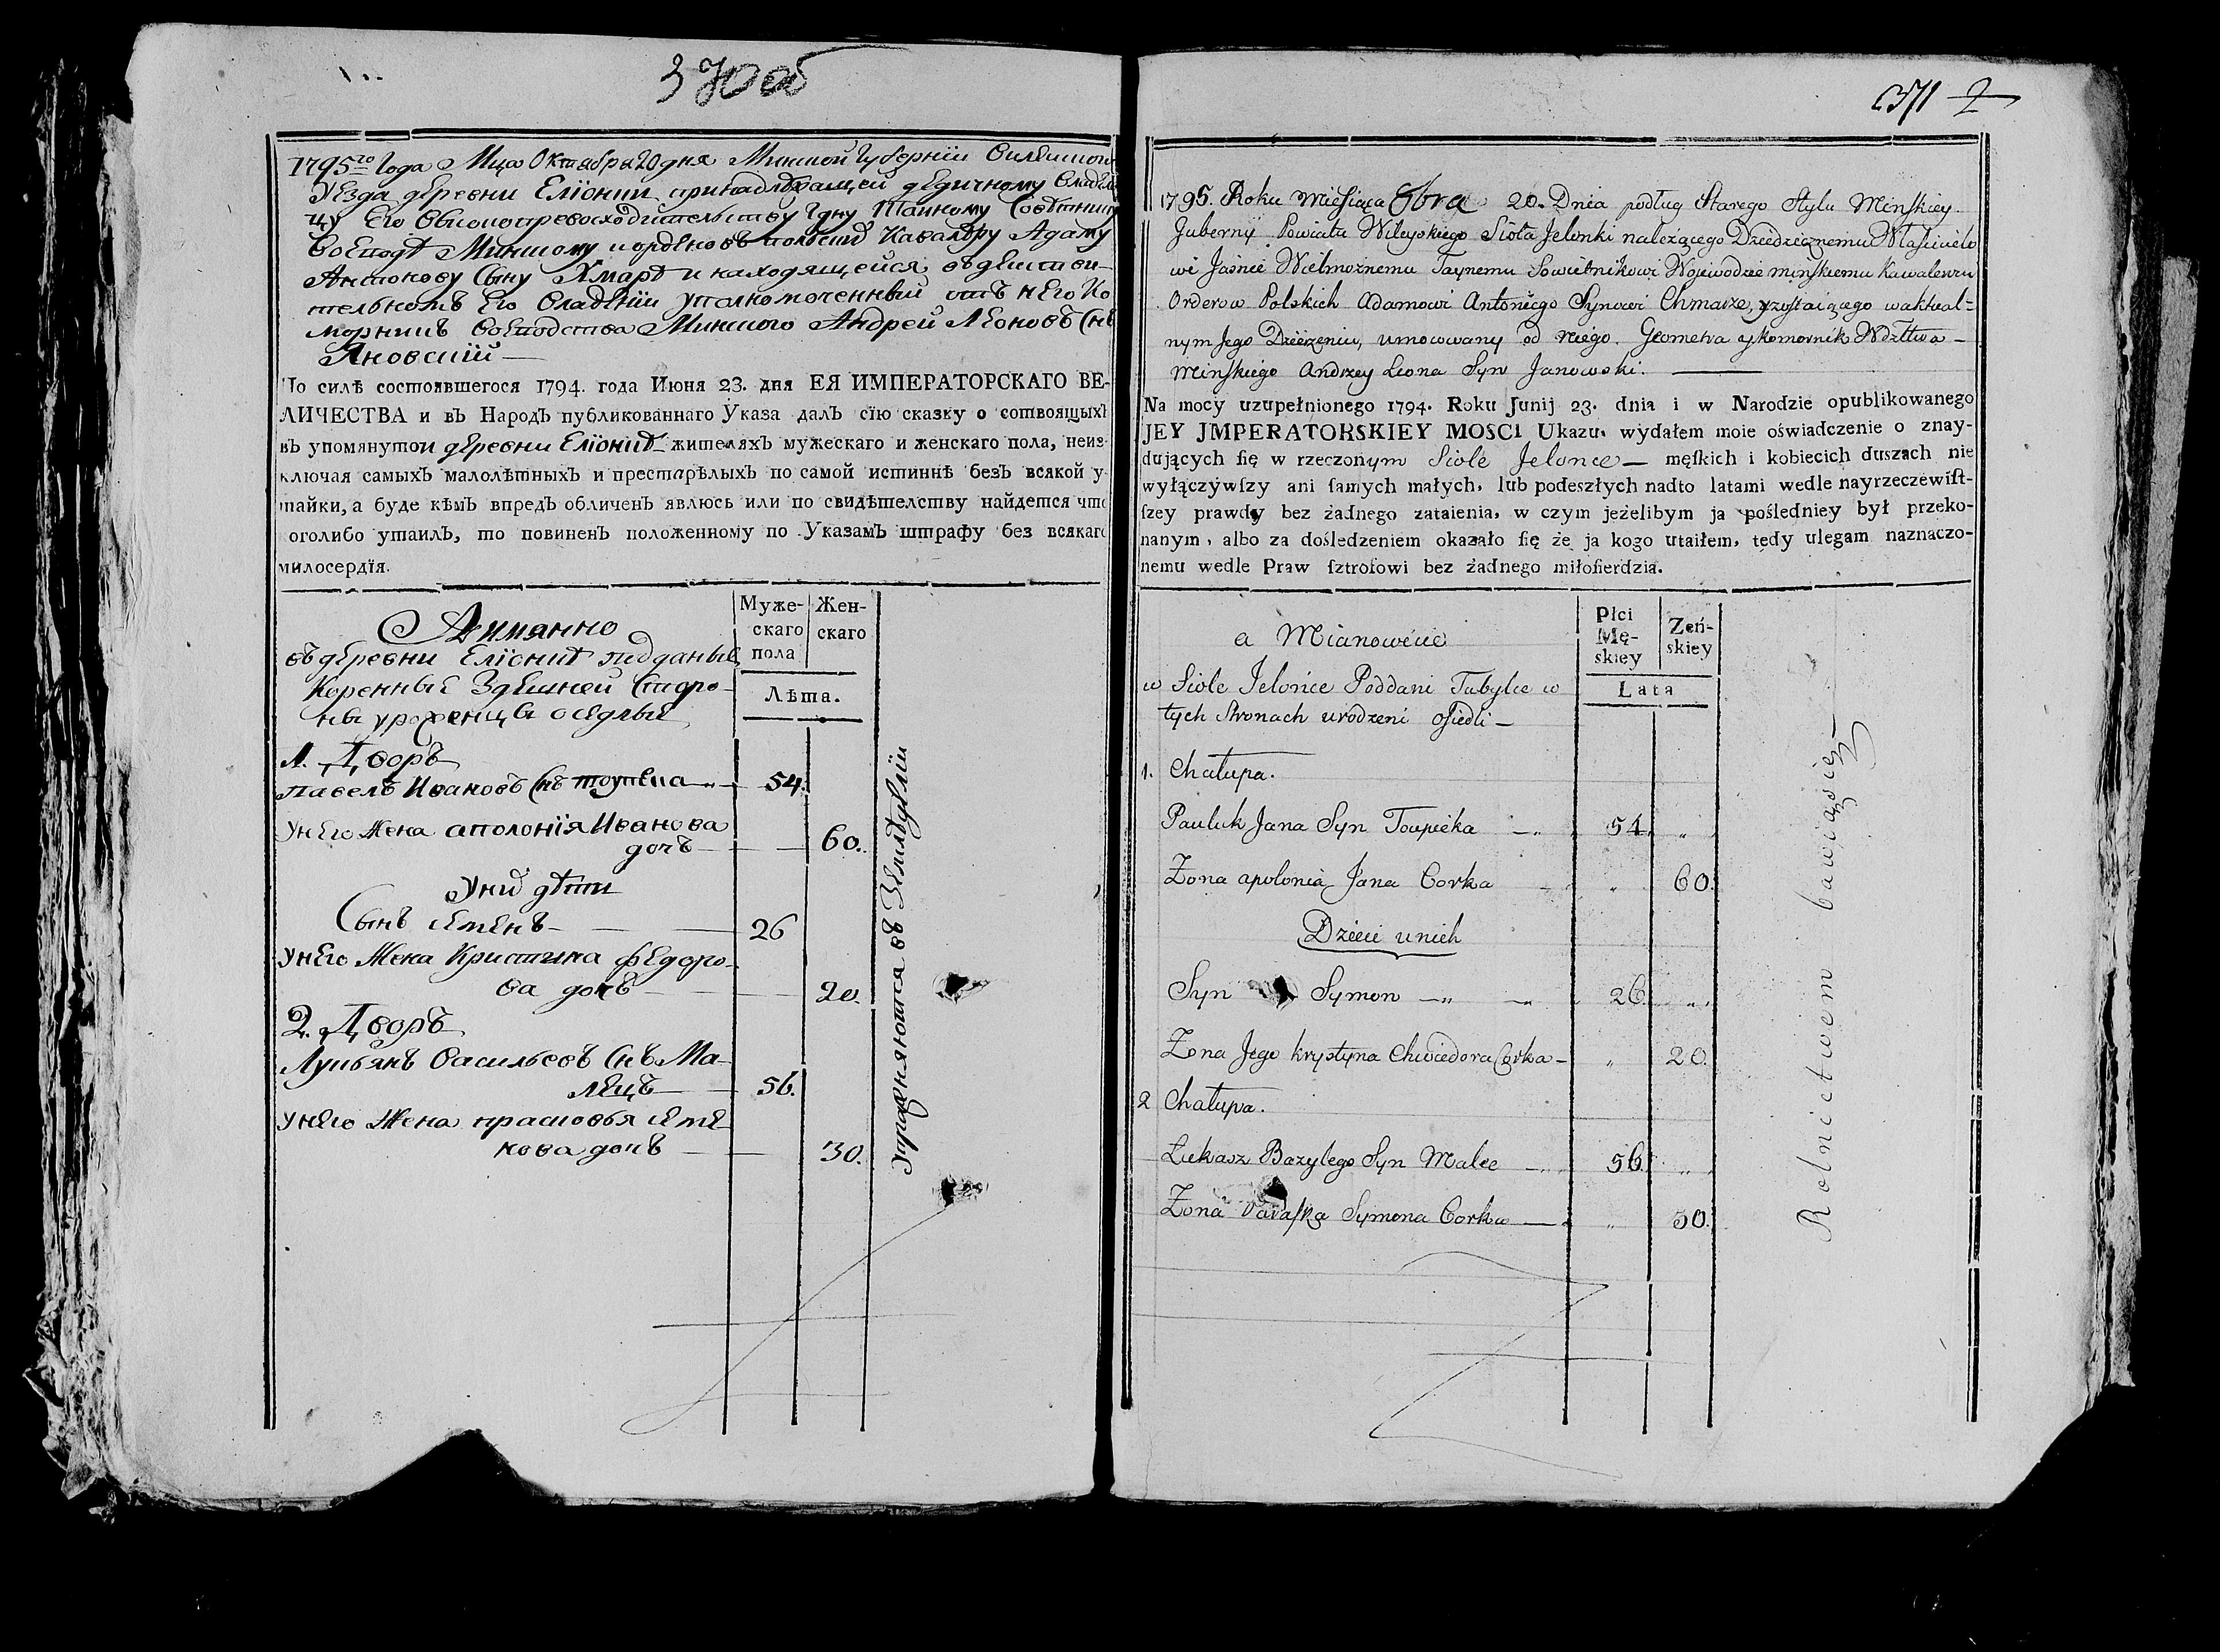 370 об
1795го Года Мца Октября 20 дня Минской Губернии Вилейского
Уезда деревни Еліонки принадлежащей дедичному Владель
цу Его Высокопревосходительству Гдну Тайному Советнику
Воеводе Минскому и орденовъ польскихъ Кавалеру Адаму
Антонову Сыну Хмаре и находящейся въ действи-
тельномъ Его Владении уполномоченный отъ него Ко
морникъ Воеводства Минского Андрей Леоновъ Снъ
Яновский
По силѣ состоявшегося 1794. года Июня 23. дня ЕЯ ИМПЕРАТОРСКАГО ВЕ-
ЛИЧЕСТВА и въ Народъ публикованнаго Указа далъ сїю сказку о сотвоящыхъ
въ упомянутои деревни Еліонкѣ жителяхъ мужескаго и женскаго пола, неиз-
ключая самыхъ малолѣтныхъ и престарѣлыхъ по самой истиннѣ безъ всякой у-
тайки, а буде кѣмъ впредъ обличенъ явлюсь или по свидѣтелству найдется что
оголибо утаилъ, то повиненъ положенному по Указамъ штрафу без всякаго
милосердїя.
А имянно
въ деревни Еліонкѣ подданые
Коренные Здешней Сторо-
ны уроженцы оседлые
Муже-
скаго
пола
Жен-
скаго
Лѣта.
1. Дворъ
Павелъ Ивановъ Снъ Тоупека 54.
У него Жена аполонія Иванова
дочь 60.
У них дѣти
Сынъ Семенъ 26
У него Жена Кристина Федоро-
ва дочь 20.
2. Дворъ
Лукьянъ Васильевъ Снъ Ма-
лецъ 56.
У него Жена прасковья Семе
нова дочь 30.
Упражняются въ Земледелїи
371 2
1795. Roku Miesiąca 8bra 20. Dnia podług Starego Stylu Minskiey
Guberny Powiatu Wileyskiego Sioła Jelonki należącego Dziedzicznemu Własicielo
wi Jaśnie Wielmożnemu Taynemu Sowietnikowi Wojewodzie minskiemu Kawalerowi
Orderow Polskich Adamowi Antoniego Synowi Chmarze, y zostaiącego waktual-
nym Jego Dzierżeniu, umocowany od niego. Geometra y Komornik Wdztwa
Minskiego Andrzey Leona Syn Janowski.
Na mocy uzupełnionego 1794. Roku Junij 23. dnia i w Narodzie opublikowanego
JEY JMPERATORSKIEY MOSCI Ukazu, wydałem moie oświadczenie o znay-
duiących się w rzeczonym Siole Jelonce męskich i kobiecich duszach nie
wyłączywszy ani samych małych, lub podeszłych nadto latami wedle nayrzeczewist-
szey prawdy bez żadnego zataienia, w czym jeżelibym ja pośledniey był przeko-
nanym, albo za dośledzeniem okazało się że ja kogo utaiłem, tedy ulegam naznaczo-
nemu wedle Praw sztrofowi bez żadnego miłosierdzia.
a Mianowicie
w Siole Jelońce Poddani Tubylce w
tych Stronach urodzeni osiedli
Płci
Mę-
skiey
Zeń-
skiey
Lata
1. Chałupa.
Pauluk Jana Syn Toupieka 54 "
Zona apolonia Jana Corka " 60.
Dzieci unich
Syn Symon 26 "
Zona Jego krystyna Chwiedora Corka " 20.
2 Chałupa.
Łukasz Bazylego Syn Malec 56 "
Zona Paraska Symona Corka " 30.
Rolnictwem bawiąsię